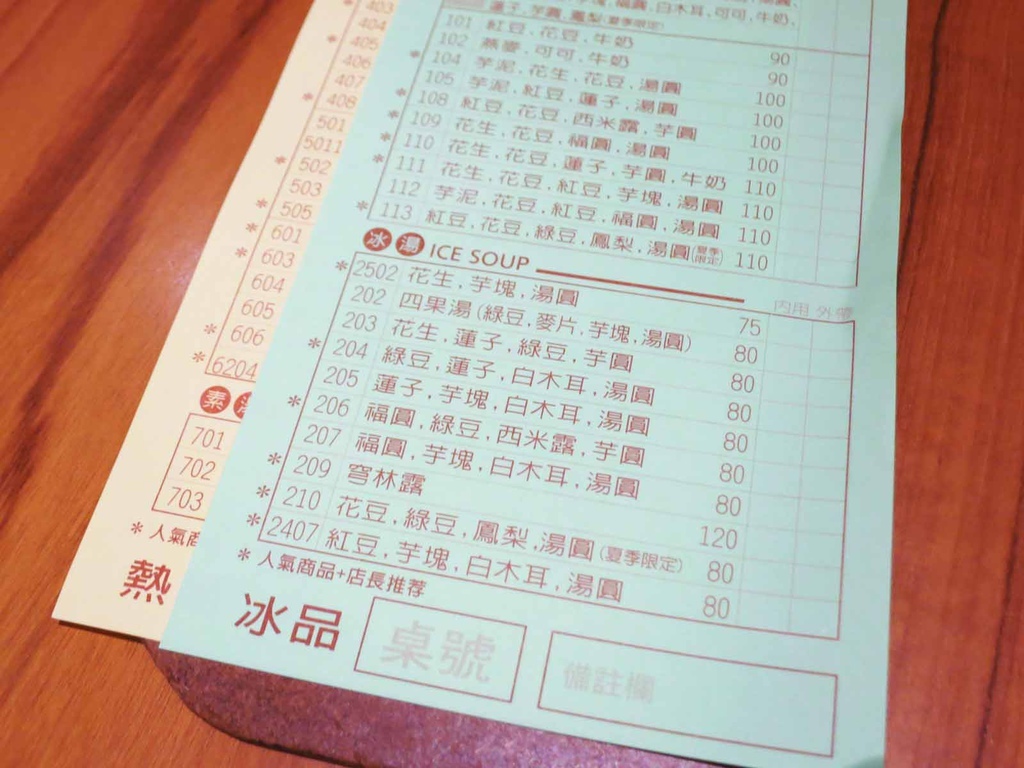 蓮子,芋圓,鳳梨(夏季限定)
101 紅豆,花豆,牛奶 90
102 燕麥,可可,牛奶 90
104 芋泥,花生,花豆,湯圓 100
* 105 芋泥,紅豆,蓮子,湯圓 100
108 紅豆,花豆,西米露,芋圓 100
* 109 花生,花豆,福圓,湯圓
* 110 花生,花豆,蓮子,芋圓,牛奶 110
* 111 花生,花豆,紅豆,芋塊,湯圓 110
* 112 芋泥,花豆,紅豆,福圓,湯圓 110
* 113 紅豆,花豆,綠豆,鳳梨,湯圓(夏季限定) 110
冰湯 ICE SOUP
內用 外帶
* 2502 花生,芋塊,湯圓 75
202 四果湯(綠豆,麥片,芋塊,湯圓) 80
203 花生,蓮子,綠豆,芋圓 80
* 204 綠豆,蓮子,白木耳,湯圓 80
205 蓮子,芋塊,白木耳,湯圓 80
* 206 福圓,綠豆,西米露,芋圓 80
207 福圓,芋塊,白木耳,湯圓 80
* 209 穹林露 120
* 210 花豆,綠豆,鳳梨,湯圓(夏季限定) 80
* 2407 紅豆,芋塊,白木耳,湯圓 80
* 人氣商品+店長推荐
冰品
桌號
備註欄
403
404
* 405
406
407
* 408
501
5011
* 502
503
* 505
* 601
* 603
604
605
* 606
* 6204
素
701
702
703
* 人氣
熱